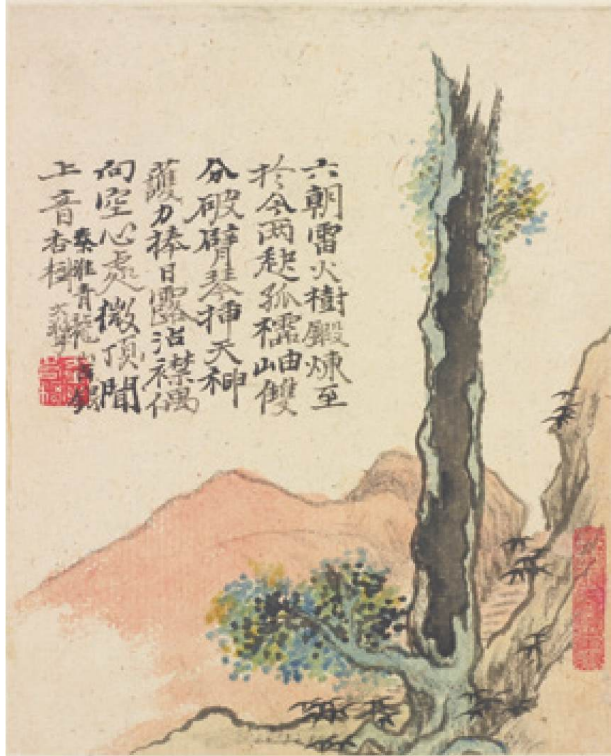 六朝雷火樹鍛煉至
扵今兩蛻孤岫雙
分破臂琴挿天神
護力捧日露沾襟偶
向空心處微頂聞
上音
秦淮青龍山古銀
杏樹